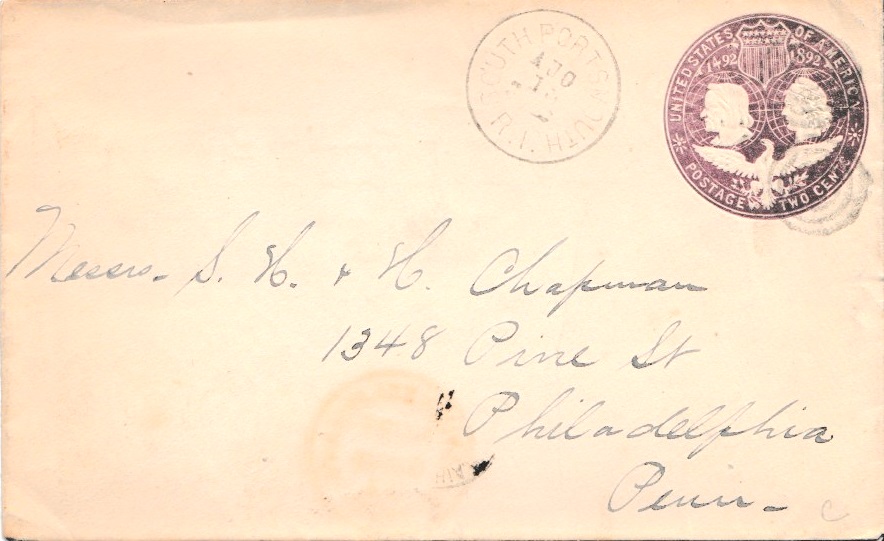 SOUTH PORTSMOUTH
R.I.
UNITED STATES OF AMERICA
1492 1892
POSTAGE TWO CENTS
Messrs. S. H. & H. Chapman
1348 Pine St
Philadelphia
Penn-
C